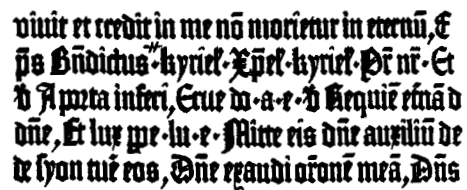 viuit et credit in me nō morietur in eternū, E
p̄s Bn̄dictus · kyriel̄ · Xp̄el̄ · kyriel̄ · Pr̄ nr̄ · Et
A porta inferi, Erue do · a · e · Requiē et̄nā d
dn̄e, Et lux ꝑpe · lu · e · Mitte eis dn̄e auxiliū de
de syon tuē eos, Dn̄e exaudi or̄onē meā, Dn̄s